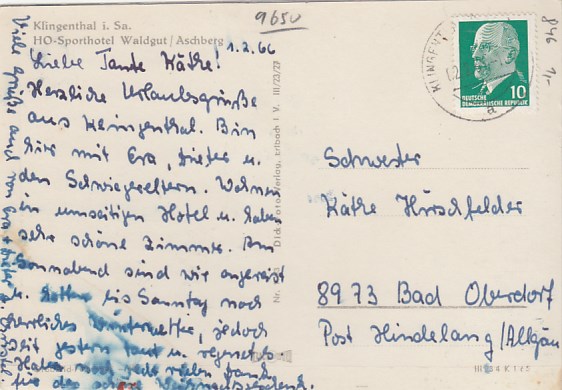 Klingenthal i. Sa.
HO-Sporthotel Waldgut/Aschberg
9650
1.2.66
Liebe Tante Käthe!
Herzliche Urlaubsgrüße
aus Klingenthal. Bin
hier mit Eva, Dieter u.
den Schwiegereltern. Wohnen
im umseitigen Hotel u. haben
sehr schöne Zimmer. Am
Sonnabend sind wir angereist
u. hatten bis Sonntag noch
herrliches Winterwetter, jedoch
seit gestern taut u. regnet
Haben noch jede vielen Dank
für das
Viele Grüße auch von Eva + Dieter
Erlbach i. V. III/23/27
Schwester
Käthe Hirschfelder
8973 Bad Oberdorf
Post Hindelang/Allgäu
KLINGENT
DEUTSCHE
DEMOKRATISCHE REPUBLIK
10
a
846
1,-